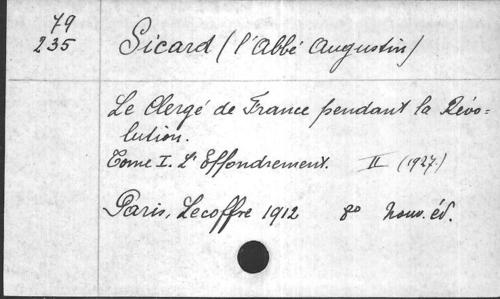 79
235
Sicard (l'Abbé Augustin)
Le Clergé de France pendant la Révo=
lution.
Tome I. L'Effondrement. II (1927.)
Paris, Lecoffre 1912 8º Nouv. éd.